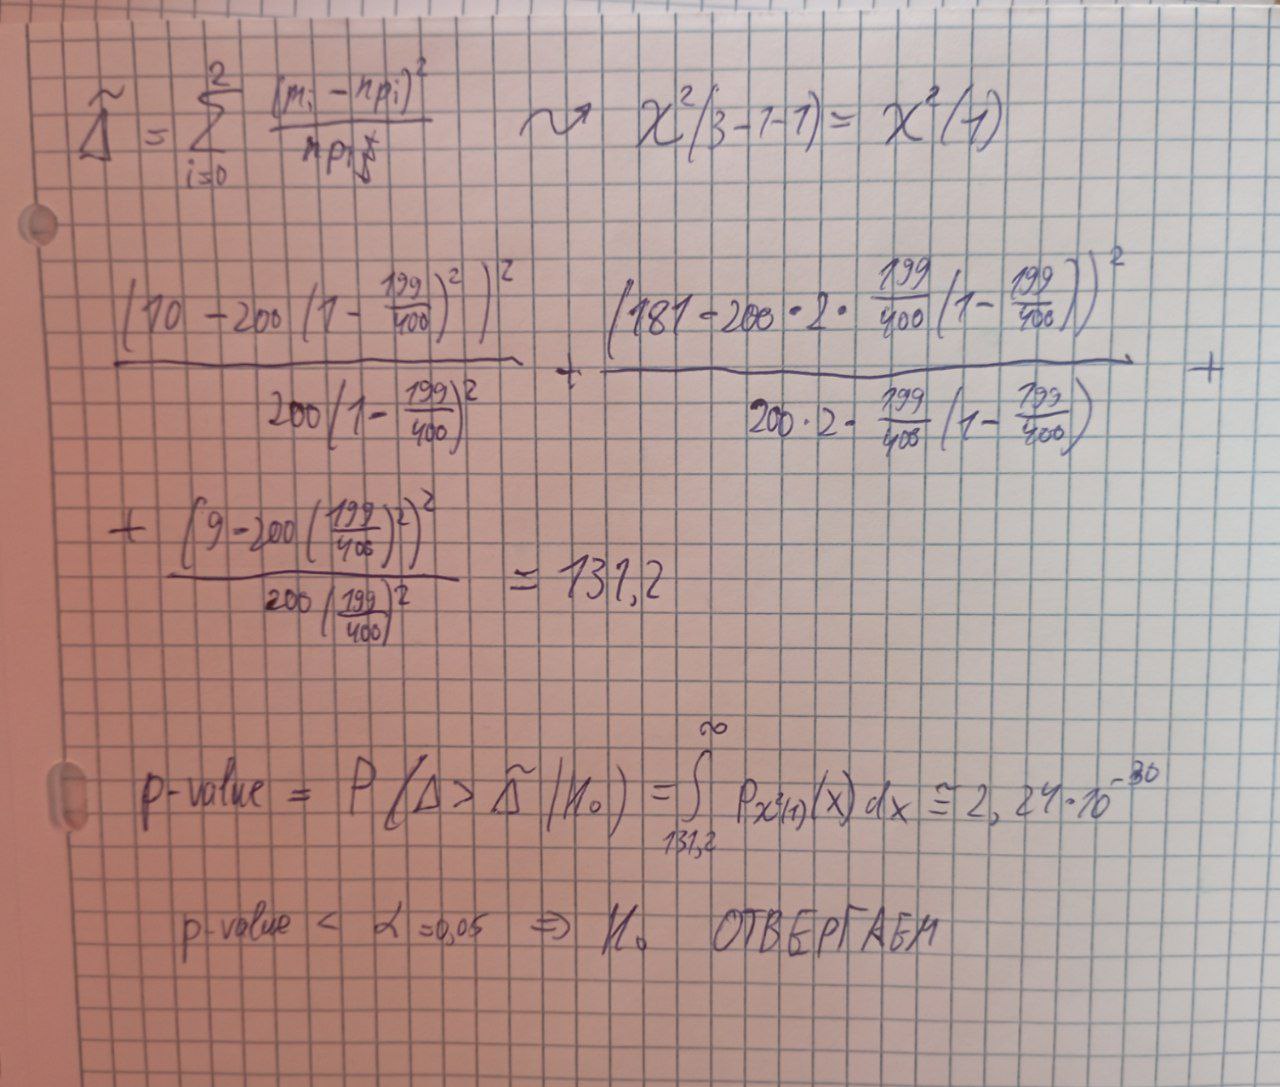 Δ̃ = ∑_{i=0}^{2} (m_i - np_i)² / np_i ⇝ χ²(3-1-1) = χ²(1)
(10 - 200(1 - 199/400)²)² / 200(1 - 199/400)² + (181 - 200·2·199/400(1 - 199/400))² / 200·2·199/400(1 - 199/400) +
+ (9 - 200(199/400)²)² / 200(199/400)² = 131,2
p-value = P(Δ > Δ̃ | H₀) = ∫_{131,2}^{∞} p_{χ²(1)}(x) dx ≅ 2,24·10⁻³⁰
p-value < α = 0,05 ⇒ H₀ ОТВЕРГАЕМ